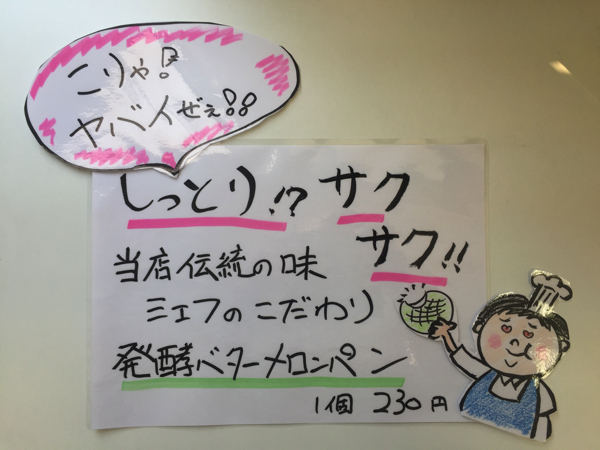 こりゃ!
ヤバイぜぇ!!
しっとり!?サク
サク!!
当店伝統の味
ミェフのこだわり
発酵バターメロンパン
1個 230円